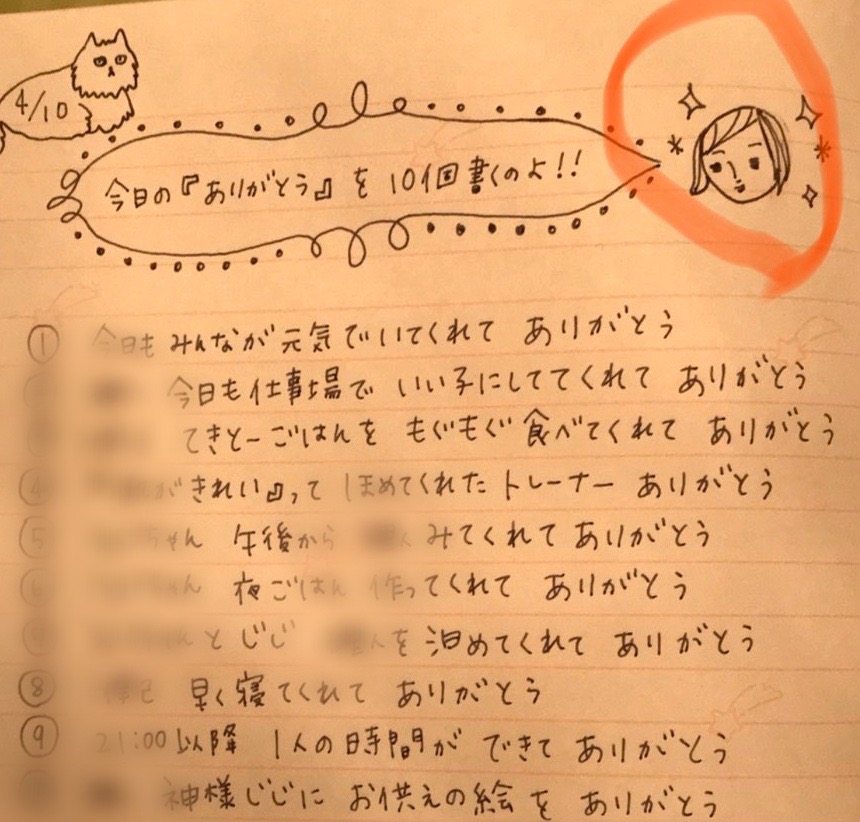 4/10
今日の『ありがとう』を10個書くのよ!!
① 今日も みんなが元気でいてくれて ありがとう
今日も仕事場で いい子にしててくれて ありがとう
てきとーごはんを もぐもぐ食べてくれて ありがとう
④ がきれい』って ほめてくれた トレーナー ありがとう
⑤ ちゃん 午後から みてくれて ありがとう
⑥ ちゃん 夜ごはん 作ってくれて ありがとう
とじじ を泊めてくれて ありがとう
⑧ 早く寝てくれて ありがとう
⑨ 21:00以降 1人の時間が できて ありがとう
神様じじに お供えの絵を ありがとう